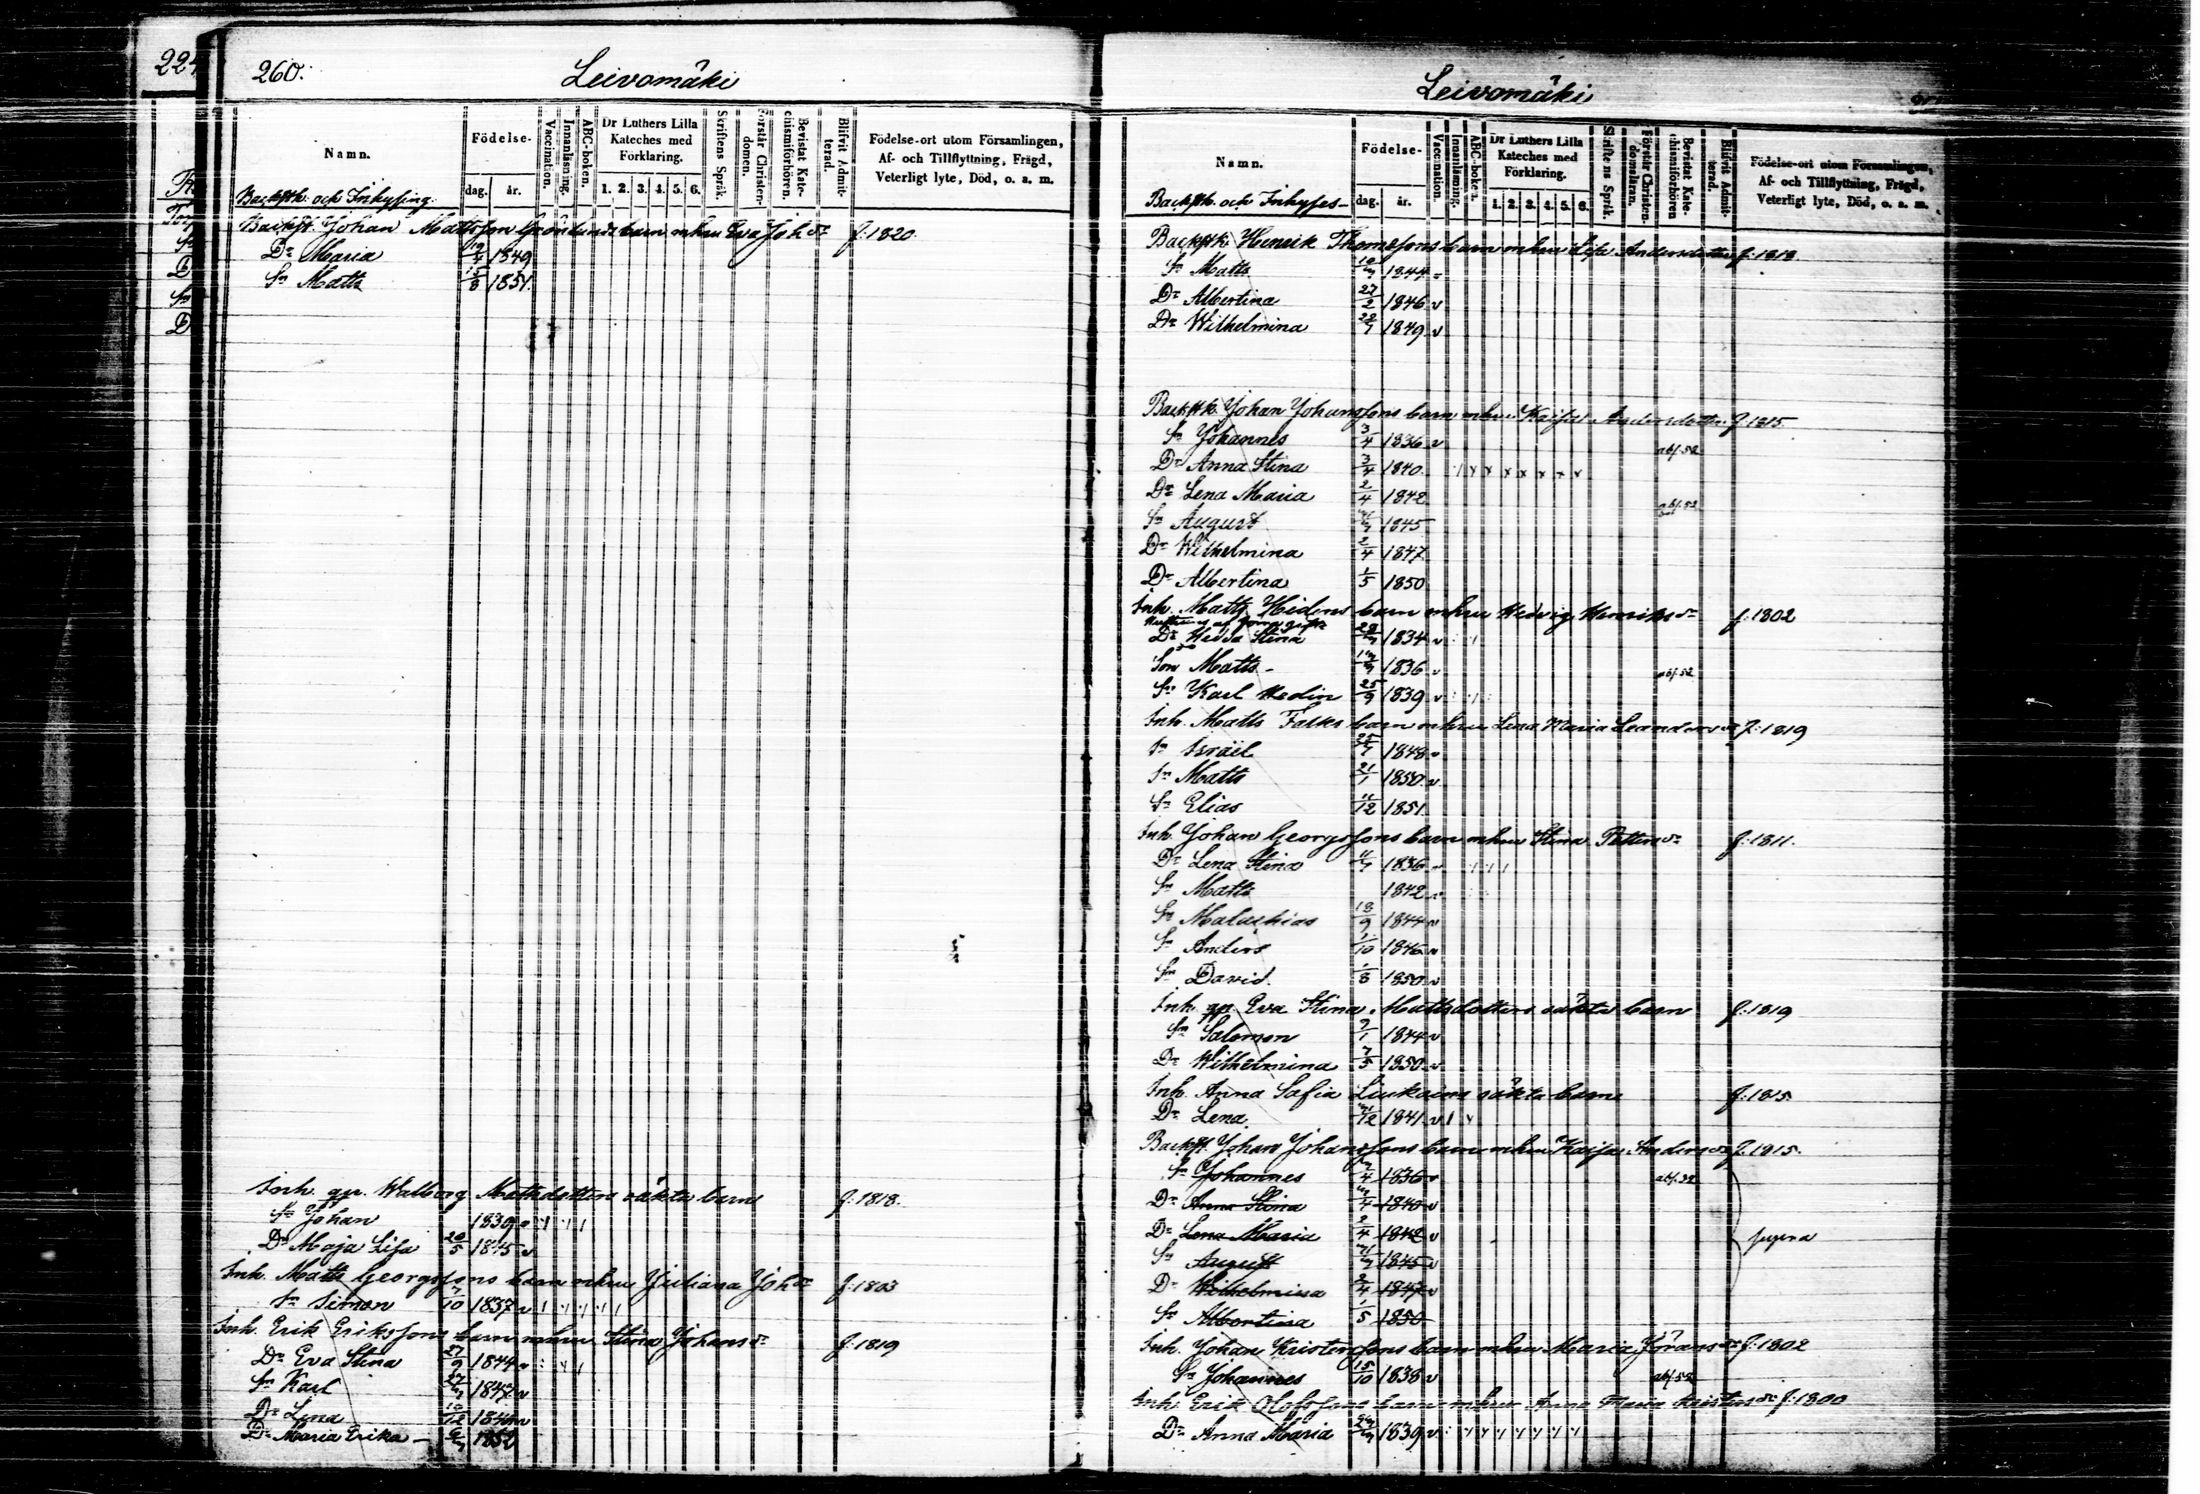 224
260.
Leivomäki
Namn.
Födelse-
dag. år.
Vaccination.
Innanläsning.
ABC-boken.
Dr Luthers Lilla Kateches med Förklaring.
1. 2. 3. 4. 5. 6.
Skriftens Språk.
Förstår Christendomen.
Bevistat Katechismiförhören.
Blifvit Admitterad.
Födelse-ort utom Församlingen, Af- och Tillflyttning, Frägd, Veterligt lyte, Död, o. a. m.
Backstk. och Inhysing.
Backst. Johan Mattsson barn mhu Eva Joh dr f. 1820.
Dr Maria 4 1849
Sn Matts 15/8 1851.
Inh. gp. Walborg Mattsdotters oäkta barn f. 1818.
Sn Johan 1839
Dr Maja Lisa 20/5 1845 v
Inh. Matts Georgssons barn mhu Juliana Joh dr f. 1803
Sn Simon 7/10 1837 v
Inh. Erik Erikssons barn mhu Stina Johans dr f. 1819
Dr Eva Stina 27/9 1844
Sn Karl 1847 v
Dr Lena 10/12 1849
Dr Maria Erika 1852
Leivomäki
Namn.
Födelse-
dag. år.
Vaccination.
Innanläsning.
ABC-boken.
Dr Luthers Lilla Kateches med Förklaring.
1. 2. 3. 4. 5. 6.
Skriftens Språk.
Förstår Christendomsläran.
Bevistat Katechismiförhören
Blifvit Admitterad.
Födelse-ort utom Församlingen, Af- och Tillflyttning, Frägd, Veterligt lyte, Död, o. a. m.
Backstk. och Inhyses
Backstk. Henrik Thomassons barn mhu Lisa Andersdotter f. 1818
Sn Matts 1844
Dr Albertina 27/2 1846 v
Dr Wilhelmina 28/7 1849 v
Backstk. Johan Johanssons barn mhu Kaisa Andersdotter f. 1815.
Sn Johannes 3/4 1836 v abs. 52
Dr Anna Stina 3/4 1840
Dr Lena Maria 2/4 1842 abs. 52
Sn August 1845
Dr Wilhelmina 2/4 1847
Dr Albertina 1/5 1850
Inh. Matts Hedens barn mhu Hedvig Henriks dr f. 1802
Dr Hedda Stina 1834 v
Son Matts 1836 v abs. 52
Sn Karl Hedin 25/9 1839 v
Inh. Matts Falks barn mhu Lena Maria Leanders dr f. 1819
Sn Israël 1848
Sn Matts 21/1 1850 v
Sn Elias 11/12 1851
Inh. Johan Georgssons barn mhu Stina Petters dr f. 1811.
Dr Lena Stina 1836
Sn Matts 1842
Sn Malachias 18/9 1844 v
Sn Anders 1/10 1846
Sn David 1/8 1850 v
Inh. gp. Eva Stina Mattsdotters oäkta barn f. 1819
Sn Salomon 1844 v
Dr Wilhelmina 7/5 1850
Inh. Anna Safia oäkta barn f. 1815
Dr Lena 1841 v
Backst. Johan Johanssons barn mhu Kaisa Anders dr f. 1815.
Sn Johannes 1836
Dr Anna Stina 1840 v
Dr Lena Maria 2/4 1842 v
Sn August 1845 v
Dr Wilhelmina 2/4 1847 v
Sn Albertina 1/5 1850
Inh. Johan Kristerssons barn mhu Maria Jörans dr f. 1802
Sn Johannes 15/10 1838 v abs. 52
Inh. Erik Olofssons barn mhu Anna Maria Kristers dr f. 1800
Dr Anna Maria 1839 v